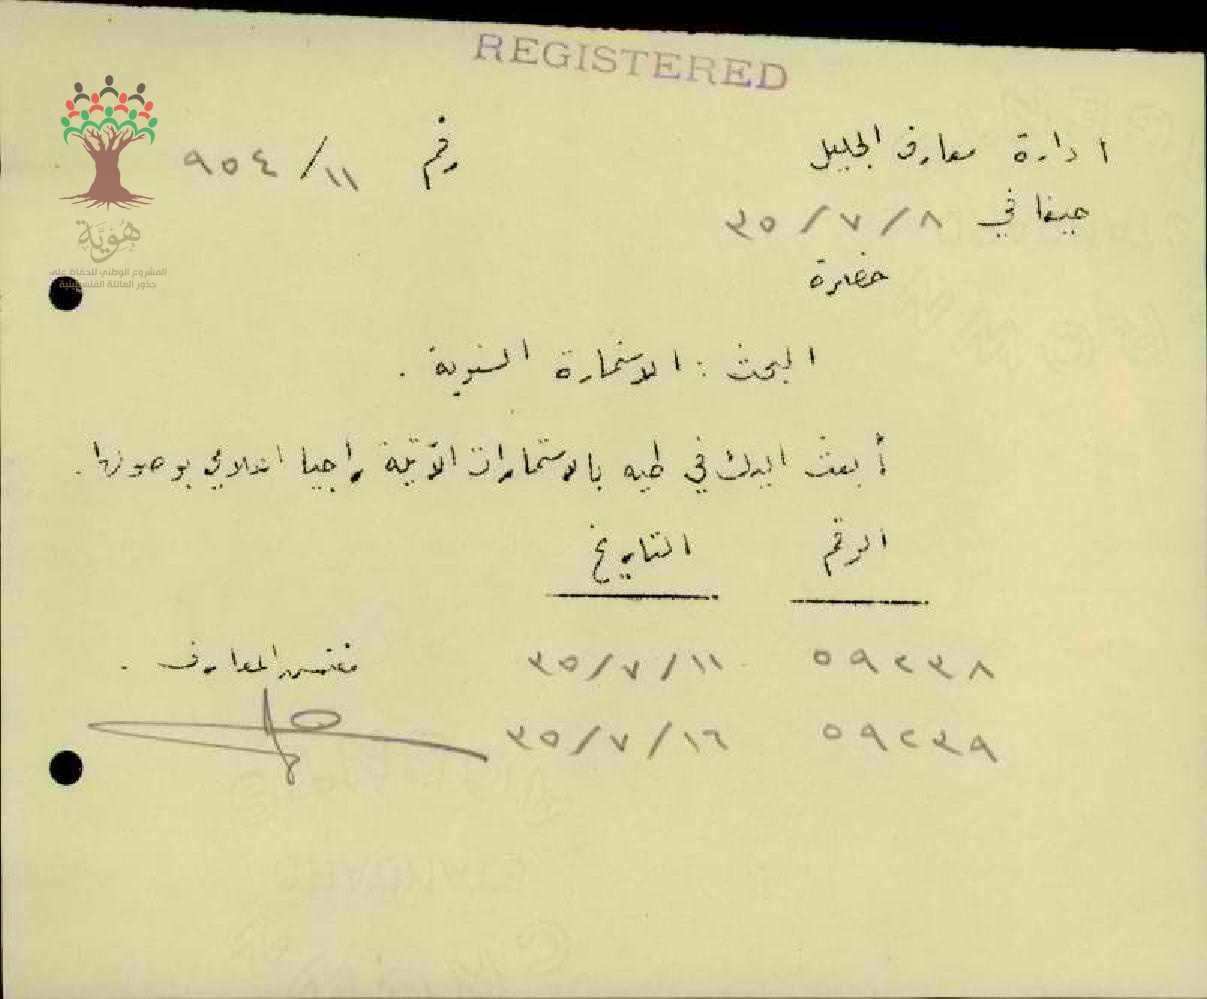 REGISTERED
ادارة معارف الجليل
رقم ١١/ ٩٥٤
حيفا في ٨ / ٧ / ٣٥
هُوِيَّة
المشروع الوطني للحفاظ على
جذور العائلة الفلسطينية
حضرة
البحث : الاستمارة السنوية .
أبعث اليك في طيه بالاستمارات الآتية راجيا اعلامي بوصولها .
الرقم التاريخ
٥٩٢٣٨ ١١/ ٧ /٣٥ مفتش المعارف .
٥٩٢٣٩ ١٦/ ٧ /٣٥